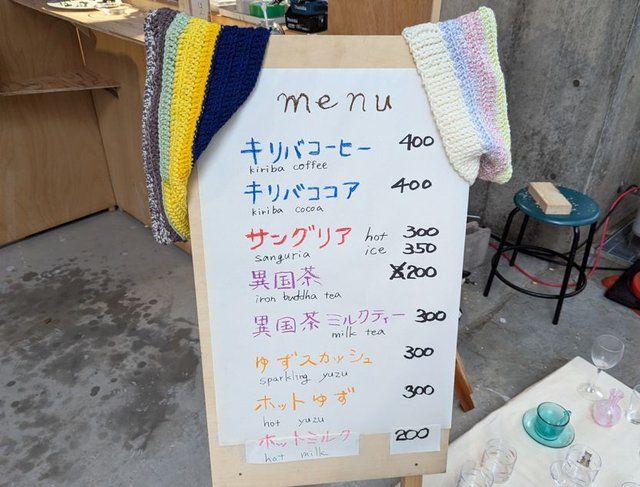 menu
キリバコーヒー 400
kiriba coffee
キリバココア 400
kiriba cocoa
サングリア hot 300
sanguria ice 350
異国茶 200
iron buddha tea
異国茶ミルクティー 300
milk tea
ゆずスカッシュ 300
sparkling yuzu
ホットゆず 300
hot yuzu
ホットミルク 200
hot milk